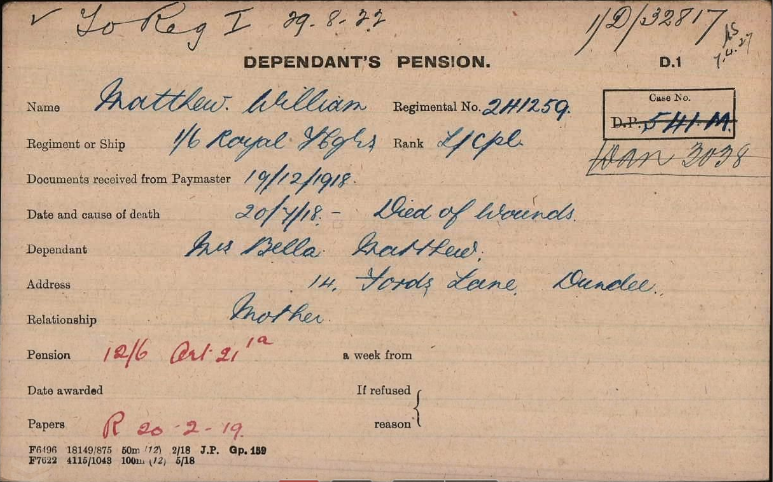 ✓ To Reg I 29.8.22 1/D/32817
AS
7.4.27
DEPENDANT'S PENSION. D.1
Name Matthew. William Regimental No. 241259. Case No.
D.P. 541.M.
Regiment or Ship 1/6 Royal Hghs Rank L/Cpl. 3038
Documents received from Paymaster 19/12/1918.
Date and cause of death 20/7/18. - Died of Wounds.
Dependant Mrs Bella Matthew.
Address 14, Fords Lane, Dundee.
Relationship Mother
Pension 12/6 Art 21 1a a week from
Date awarded If refused
Papers R 20-2-19. reason
F6496 18149/875 50m (12) 2/18 J.P. Gp. 159
F7622 4115/1043 100m (12) 5/18